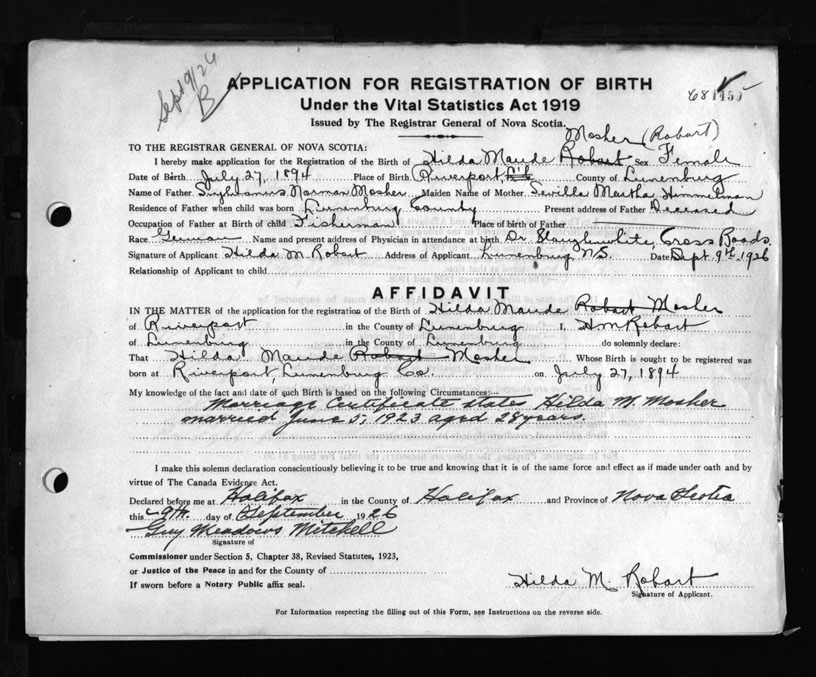 Sept 9/26
B
APPLICATION FOR REGISTRATION OF BIRTH
Under the Vital Statistics Act 1919
Issued by The Registrar General of Nova Scotia.
Mosher (Robart)
TO THE REGISTRAR GENERAL OF NOVA SCOTIA:
I hereby make application for the Registration of the Birth of Hilda Maude Robart Sex Female
Date of Birth July 27, 1894 Place of Birth Riverport, County of Lunenburg
Name of Father Norman Mosher Maiden Name of Mother Sevilla Martha Himmelman
Residence of Father when child was born Lunenburg County Present address of Father Deceased
Occupation of Father at Birth of child Fisherman Place of birth of Father
Race German Name and present address of Physician in attendance at birth Dr Slaughwhite, Cross Roads.
Signature of Applicant Hilda M Robart Address of Applicant Lunenburg N.S. Date Sept. 9th 1926
Relationship of Applicant to child
AFFIDAVIT
IN THE MATTER of the application for the registration of the Birth of Hilda Maude Robart Mosher
of Riverport in the County of Lunenburg I, H M Robart
of Lunenburg in the County of Lunenburg do solemnly declare:
That Hilda Maude Robart Mosher Whose Birth is sought to be registered was
born at Riverport, Lunenburg Co. on July 27, 1894
My knowledge of the fact and date of such Birth is based on the following Circumstances:
Marriage Certificate states Hilda M. Mosher
married June 5, 1923 aged 28 years.
I make this solemn declaration conscientiously believing it to be true and knowing that it is of the same force and effect as if made under oath and by
virtue of The Canada Evidence Act.
Declared before me at Halifax in the County of Halifax and Province of Nova Scotia
this 9th day of September 1926
Guy Meadows Mitchell
Signature of
Commissioner under Section 5, Chapter 38, Revised Statutes, 1923,
or Justice of the Peace in and for the County of
If sworn before a Notary Public affix seal.
Hilda M. Robart
Signature of Applicant.
For Information respecting the filling out of this Form, see Instructions on the reverse side.